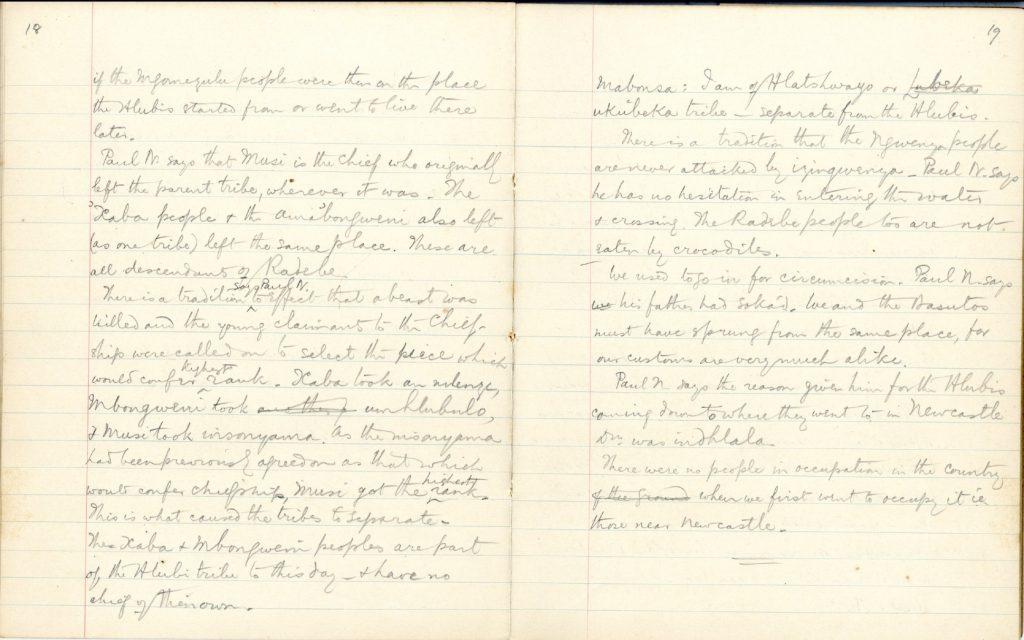 18
if the Mgomezulu people were then on the place
the Hlubis started from or went to live there
later.
Paul N. says that Musi is the chief who originally
left the parent tribe, wherever it was. The
Xaba people & the Ama'bongweni also left
(as one tribe) left the same place. These are
all descendants of Radebe.
There is a tradition says Paul N. to effect that a beast was
killed and the young claimants to the chief-
ship were called on to select the piece which
would confer highest rank. Xaba took an mlenze,
Mbongweni took um hlubulo,
& Musi took insonyama. As the insonyama
had been previously agreed on as that which
would confer chiefship, Musi got the highest rank.
This is what caused the tribes to separate.
The Xaba & Mbongweni peoples are part
of the Hlubi tribe to this day - & have no
chief of their own.
19
Mabonsa: I am of Hlatshwayo or Lubeka
ukubeka tribe - separate from the Hlubis.
There is a tradition that the Ngwenya people
are never attacked by izingwenya - Paul N. says
he has no hesitation in entering the water
& crossing. The Radebe people too are not
eaten by crocodiles.
We used to go in for circumcision. Paul N. says
we his father had sokad. We and the Basutos
must have sprung from the same place, for
our customs are very much alike.
Paul N. says the reason given him for the Hlubis
coming down to where they went to in Newcastle
Dn. was indhlala.
There were no people in occupation in the country
of the ground when we first went to occupy it ie
those near Newcastle.